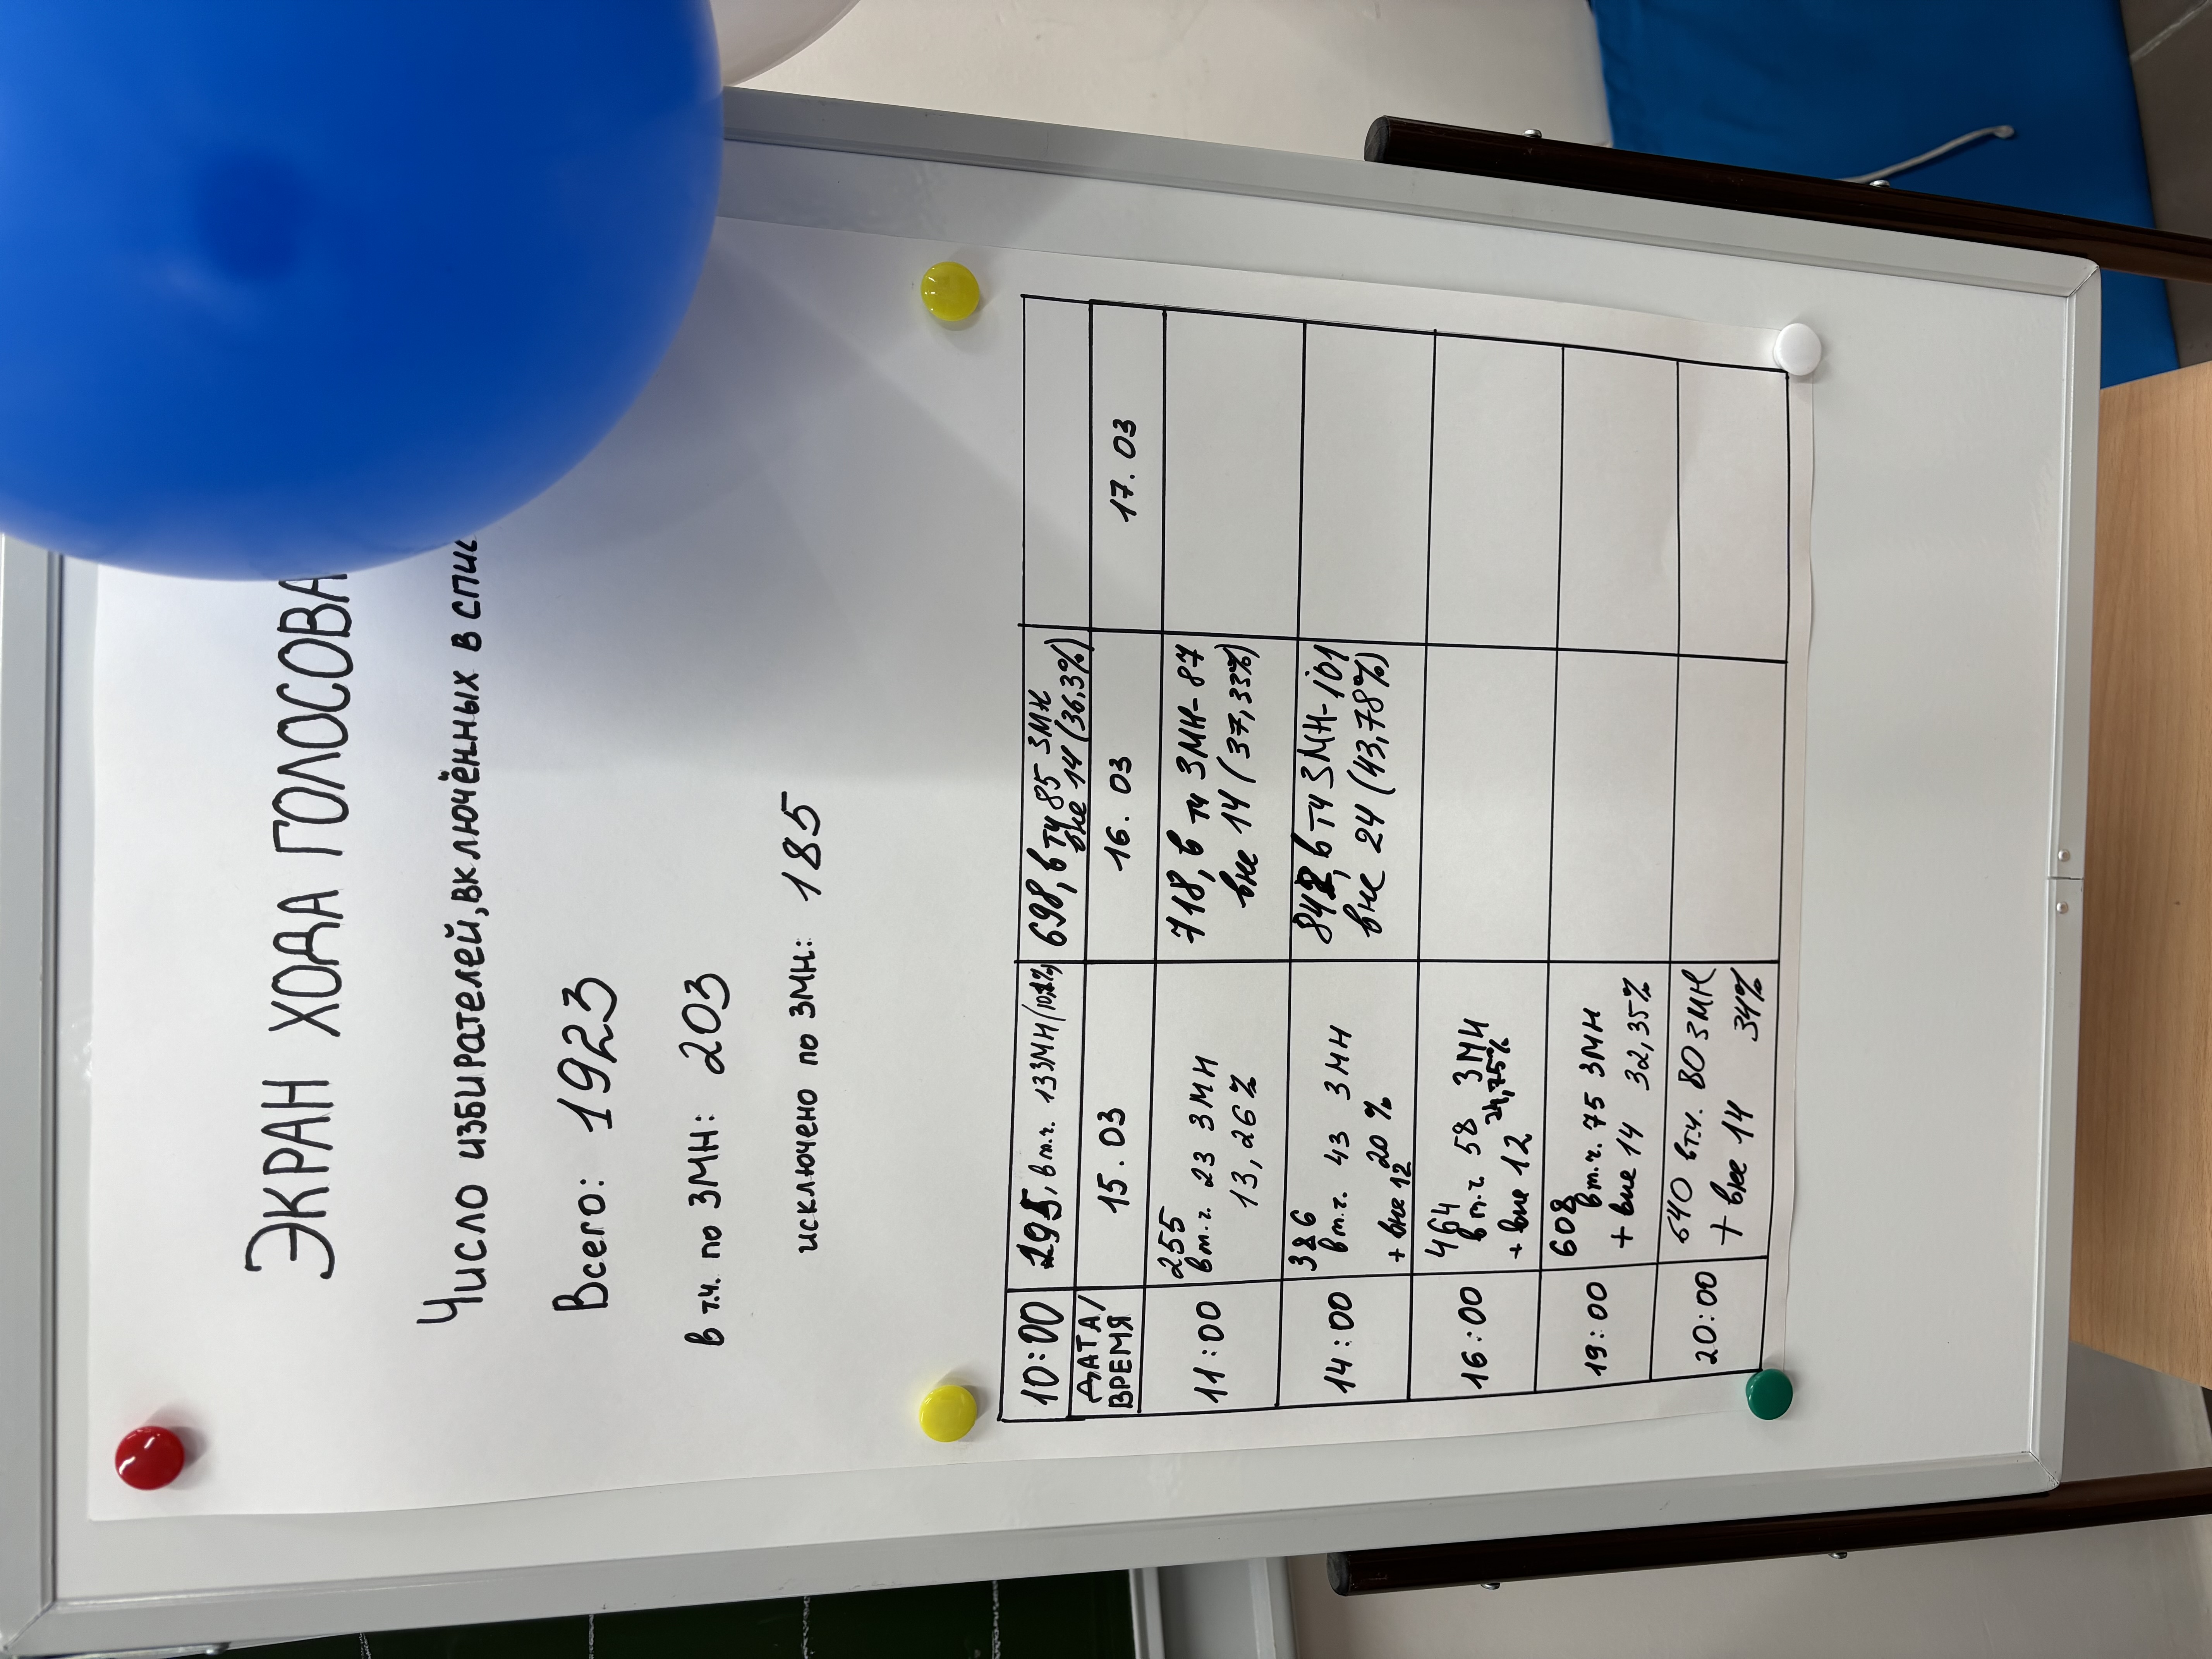 ЭКРАН ХОДА ГОЛОСОВА
Число избирателей, включённых в спис
Всего: 1923
в т.ч. по ЗМН: 203
исключено по ЗМН: 185
10:00 195, в т.ч. 13 ЗМН 698, в тч 85 ЗМН
вне 14 (36,3%)
ДАТА/ВРЕМЯ 15.03 16.03 17.03
11:00 255 718, в тч ЗМН-87
в т.ч. 23 ЗМН вне 14 (37,33%)
13,26%
14:00 386 842, в тч ЗМН-101
в т.ч. 43 ЗМН вне 24 (43,78%)
+ вне 12 20%
16:00 464
в т.ч. 58 ЗМН
+ вне 12 24,75%
19:00 608
в т.ч. 75 ЗМН
+ вне 14 32,35%
20:00 640 в т.ч. 80 ЗМН
+ вне 14 34%